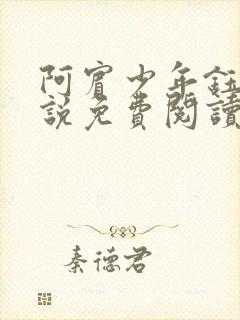 阿賓少年鈺
說免費閱讀
秦德君